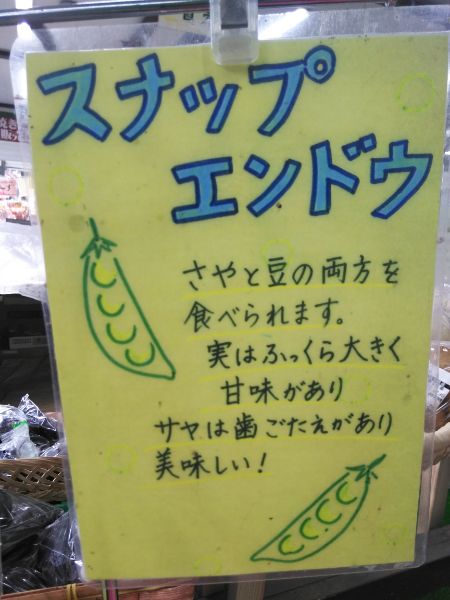 スナップ
エンドウ
さやと豆の両方を
食べられます。
実はふっくら大きく
甘味があり
サヤは歯ごたえがあり
美味しい!